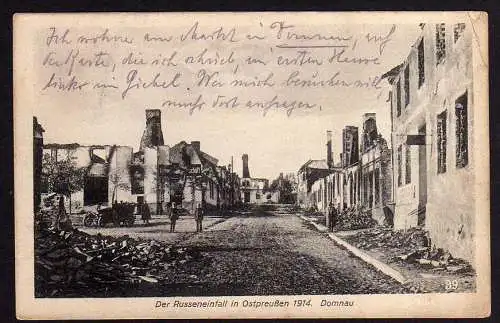 Ich wohne am Markt in Domnau, auf
der Karte, die ich schrieb, im ersten Hause
links, im Giebel. Wer mich besuchen will
muß dort anfragen.
Der Russeneinfall in Ostpreußen 1914. Domnau
89